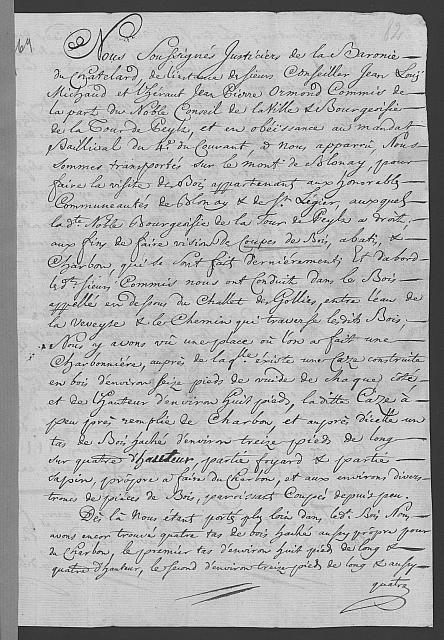 164
182
Nous Soussignés Justiciers de la Baronie
du Chatelard, de l'instance des sieurs Conseiller Jean Louis
Michaud et l'héraut Jean Pierre Ormond Commis de
la part du Noble Conseil de la Ville & Bourgeoisie
de la Tour de Peylz, et en obéissance au mandat
Baillival du 4e. du Courant, à nous apparu, Nous
sommes transportés sur le mont de Blonay, pour
faire la visite des Bois appartenant aux honorables
Communeautés de Blonay & de St. Legier, auxquels
la dte. Noble Bourgeoisie de la Tour de Peylz a droit,
aux fins de faire vision de Coupes de Bois, abati, &
Charbon, qui se sont fait dernièrement; Et d'abord
les dts. sieurs Commis nous ont conduit dans le Bois
appellé en dessous du Challet des Gollies, entre l'eau de
la Veveyse & le Chemin qui traverse lesdits Bois;
Nous y avons vû une place où l'on a fait une
Charbonnière, auprès de laqlle. éxiste une Caze construite
en bois d'environ seize pieds de vuide de chaque côté
et de l'hauteur d'environ huit pieds, la ditte Caze à
peu près remplie de Charbon, et auprès d'icelle un
tas de Bois haché d'environ treize pieds de long
sur quatre d'hauteur, partie foyard & partie
sapin, propre à faire du Charbon, et aux environs divers
troncs de pièces de Bois, paroissant Coupé depuis peu.
Dès là Nous étant portés plus loin dans ledt. Bois Nous
avons encor trouvé quatre tas de bois haché aussy propre pour
du Charbon, le premier tas d'environ huit pieds de long &
quatre d'hauteur, le second d'environ treize pieds de long & aussy
quatre